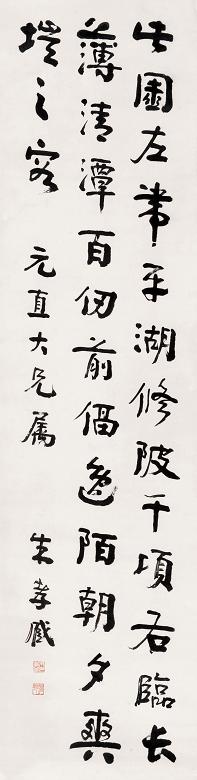 此園左帶平湖修陂千頃右臨長
薄清潭百仞前偪逸陌朝夕爽
塏之客
元直大兄屬
朱孝臧